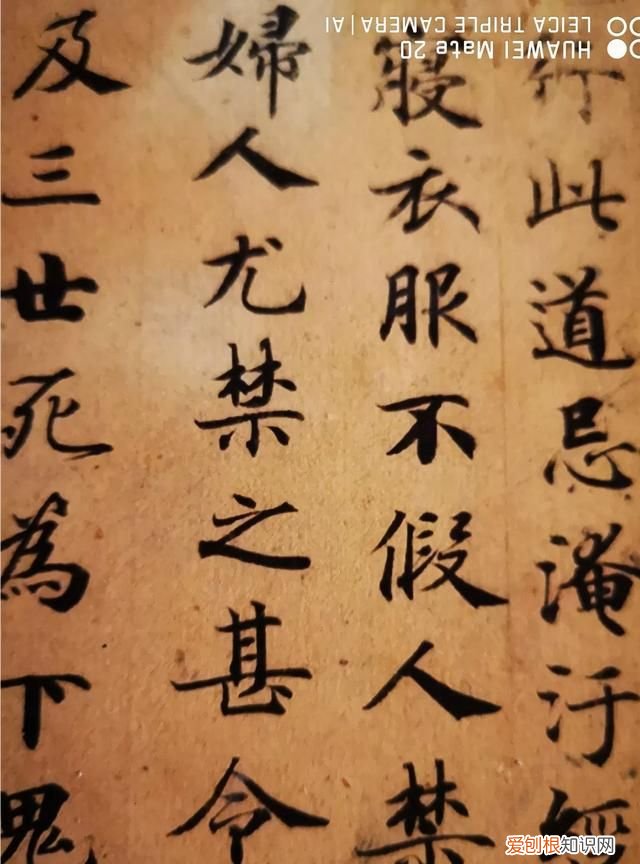 行此道忌淹汙經
寢衣服不假人禁
婦人尤禁之甚令
及三世死為下鬼
HUAWEI Mate 20
LEICA TRIPLE CAMERA | AI
爱刨根知识网